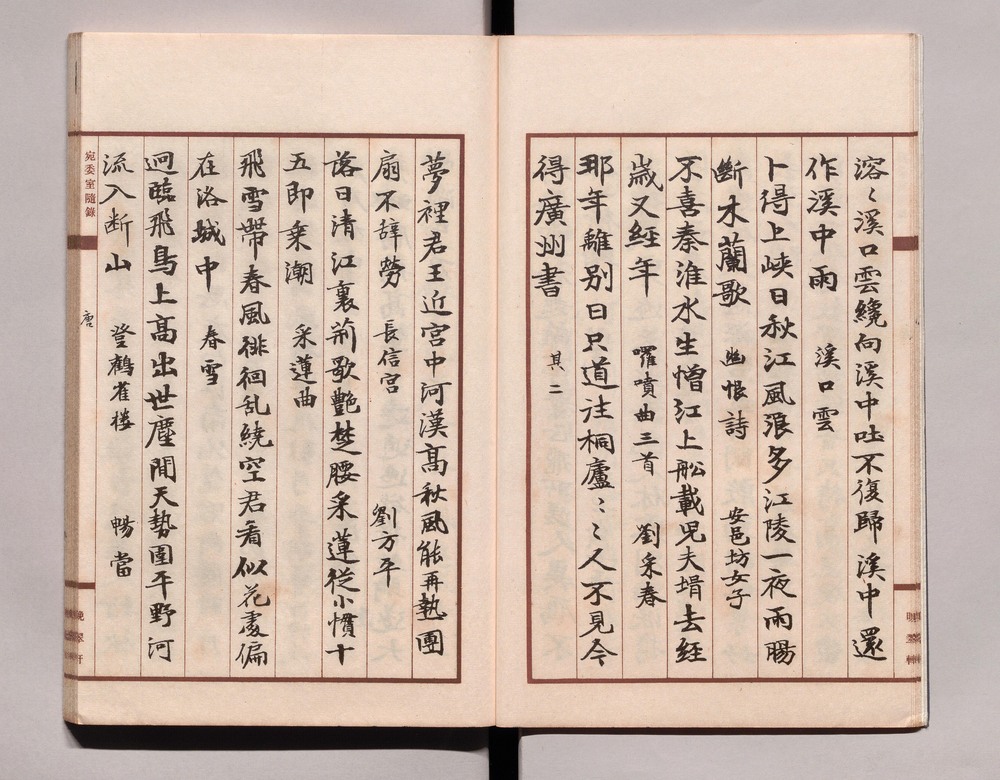 溶〻溪口雲纔向溪中吐不復歸溪中還
作溪中雨 溪口雲
卜得上峽日秋江風浪多江陵一夜雨腸
斷木蘭歌 幽恨詩 安邑坊女子
不喜秦淮水生憎江上船載兒夫壻去經
歲又經年 囉嗊曲三首 劉采春
那年離别日只道注桐廬〻〻人不見今
得廣州書 其二
夢裡君王近宮中河漢高秋風能再熱團
扇不辞勞 長信宮 劉方平
落日清江裏荊歌艶楚腰采蓮從小慣十
五即乗潮 采蓮曲
飛雪帶春風徘徊乱繞空君看似花處偏
在洛城中 春雪
迥臨飛鳥上高出世塵間天勢圍平野河
流入断山 登鶴雀楼 暢當
宛委室隨錄
唐